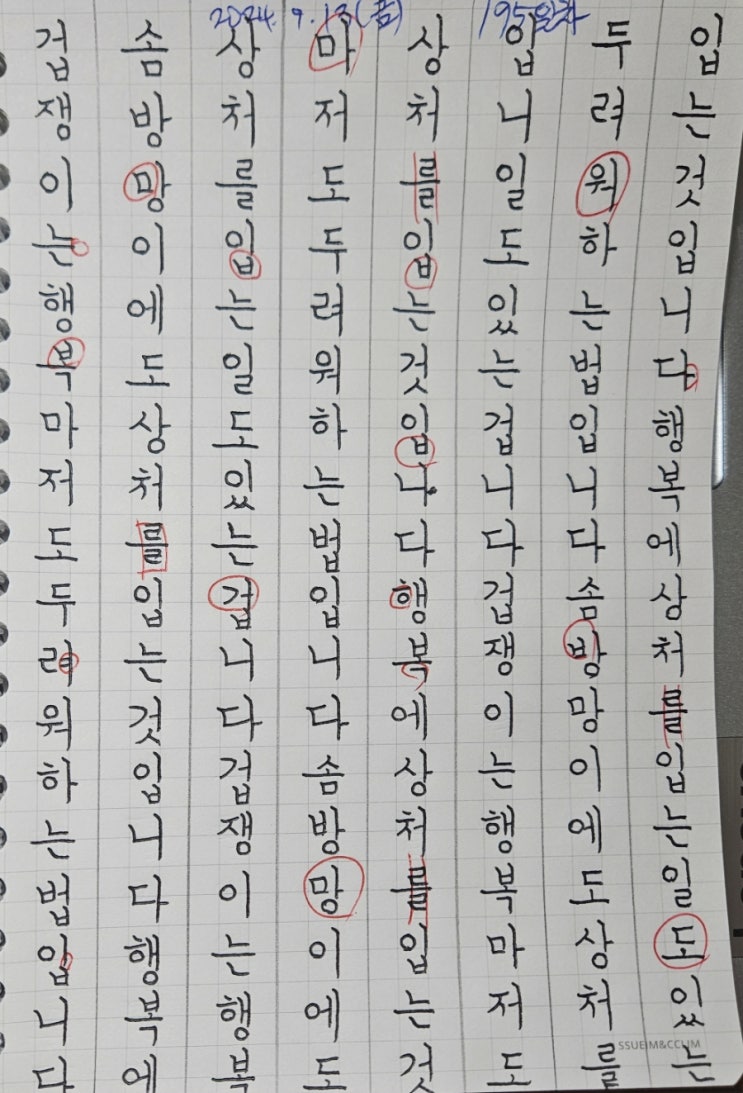 2024. 9. 13(금) 195일차
겁쟁이는행복마저도두려워하는법입니다
솜방망이에도상처를입는것입니다행복에
상처를입는일도있는겁니다겁쟁이는행복
마저도두려워하는법입니다솜방망이에도
상처를입는것입니다행복에상처를입는것
입니일도있는겁니다겁쟁이는행복마저도
두려워하는법입니다솜방망이에도상처를
입는것입니다행복에상처를입는일도있는
SSUEIM&CCLIM